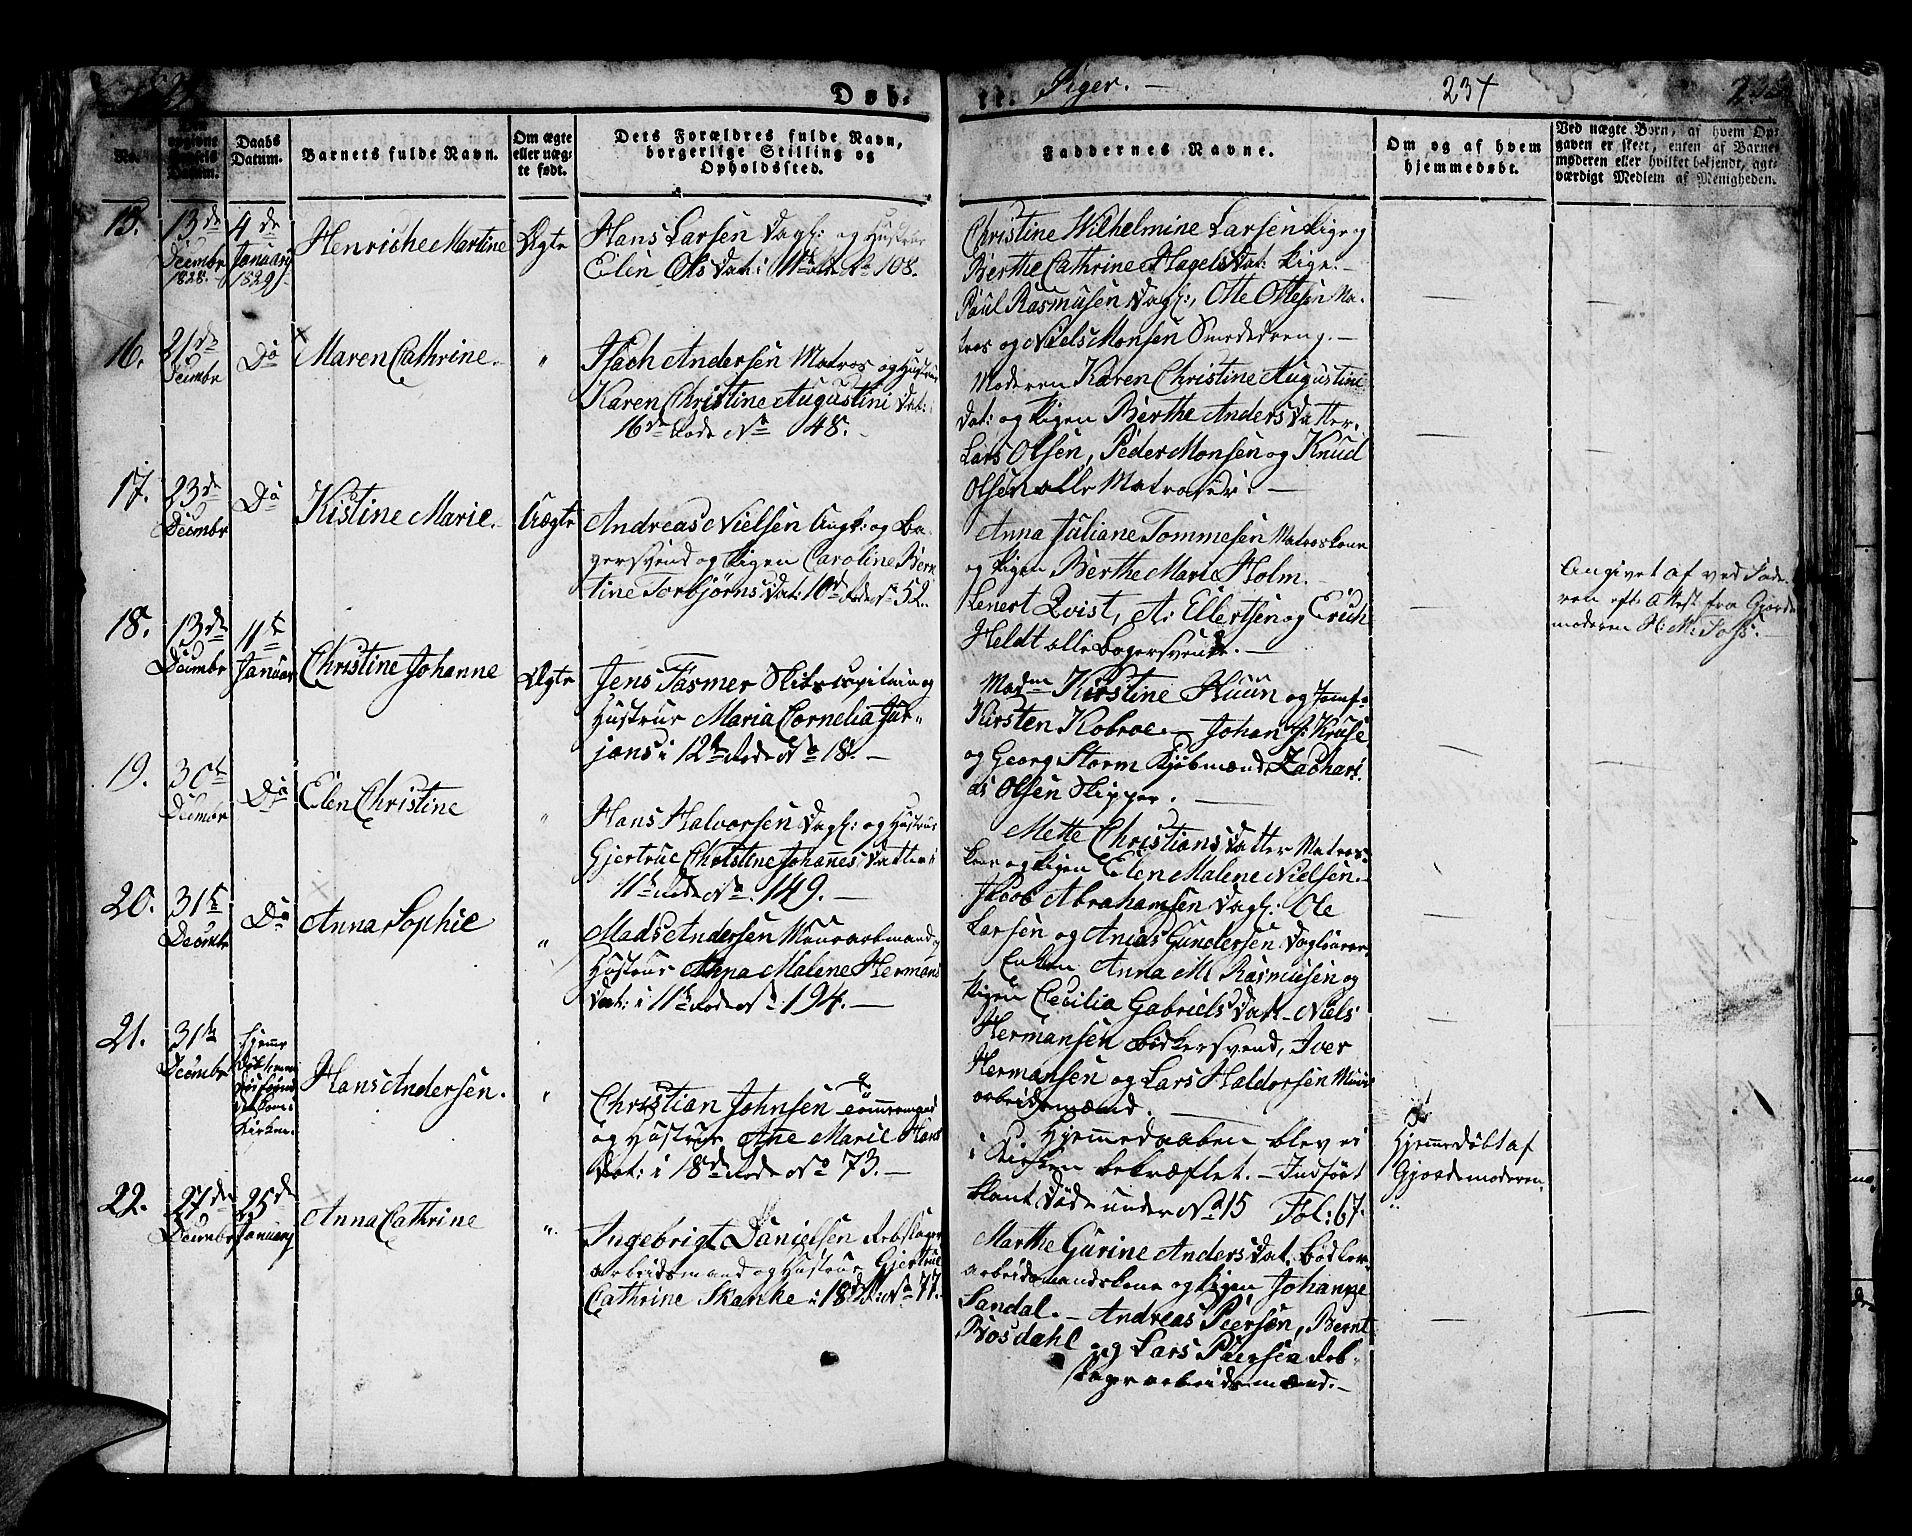 Døb-
te. Piger. —
234
No.
Daabs Datum.
Barnets fulde Navn.
Om ægte eller uæg- te født.
Dets Forældres fulde Navn, borgerlige Stilling og Opholdssted.
Faddernes Navne.
Om og af hvem hjemmedøbt.
Ved uægte Børn, af hvem Op-
gaven er skeet, enten af Barne-
moderen eller hvilket bekjendt, agt-
værdigt Medlem af Menigheden.
15.
13de
Decembr
1828.
4de
Januarj
1829.
Henriche Martine
Ægte
Hans Larsen Dagl: og Hustrue
Elen Ols Dat: i 11te Rode No 108.
Christine Wilhelmine Larsen Pige og
Berthe Cathrine Hagels Dat: Pige. —
Paul Rasmusen Dagl:, Otte Ottesen Ma-
tros og Niels Monsen Smededreng. —
16.
21de
Decembr
Do
Maren Cathrine.
"
Isach Andersen Matros og Hustrue
Karen Christine Augustini Dat:
16de Rode No 48. —
Moderen Karen Christine Augustini
Dat: og Pigen Berthe Anders Datter.
Lars Olsen, Peder Monsen og Knud
Olsen alle Matroser. —
17.
23de
Decembr
Do
Kistine Marie.
Uægte
Andreas Nielsen Ungk: og Ba-
gersvend og Pigen Caroline Bern
tine Torbjørns Dat: 10de Rode No 52.
Anna Juliane Tommesen Matroskone
og Pigen Berthe Marie Holm. —
Lenert Qvist, A: Ellertsen og Erich
Heldt alle Bagersvende. —
Angivet af ved Fade-
ren eft: Attest fra Gjorde
moderen
18.
13de
Decembr
11te
Januar
Christine Johanne
Ægte
Jens Fasmer Skibscapitain og
Hustrue Maria Cornelia Jur-
jans i 12te Rode No 18. —
Madm Kirstine Huun og Jomf:
Kirsten Kobroe. — Johan J: Kruse
og Georg Storm Kjøbmænd, Zachari
as Olsen Skipper. —
19.
30te
Decembr
Do
Elen Christine
"
Hans Halvorsen Dagl: og Hustrue
Gjertrue Christine Johannes Datter i
11te Rode No 149. —
Mette Christians Datter Matros-
kone og Pigen Elen Malene Nielsen. —
Jacob Abrahamsen Dagl: Ole
Larsen og Anias Gundersen Dagleiere.
20.
31te
Decembr
Do
Anna Sophie
"
Mads Andersen Muurarbmand og
Hustrue Anna Malene Hermans
Dat: i 11te Rode No 194. —
Enken Anna M: Rasmusen og
Pigen Cecilia Gabriels Dat: — Niels
Hermansen Bødkersvend, Iver
Hermansen og Lars Haldorsen Muur-
arbeidsmænd. —
21.
31te
Decembr
Hjemme
Kirken.
Hans Andersen.
"
Christian Johnsen Tømmermand
og Hustrue Ane Marie Hans
Dat: i 18de Rode No 73. —
Hjemmedaaben blev ei
i Kirken bekræftet. — Indført
blant Døde under No 15 Fol: 67.
Hjemmedøbt af
Gjordemoderen.
22.
27de
Decembr
25de
Januarj
Anna Cathrine
"
Ingebrigt Danielsen Rebslager
arbeidsmand og Hustrue Gjertrue
Cathrine Skanke i 18de R: No 77.
Marthe Gurine Anders Dat: Bødker-
arbeidsmandskone og Pigen Johanne
Sandal. — Andreas Peersen, Bernt
Rosdahl og Lars Peersen Reb-
slagerarbeidsmænd. —